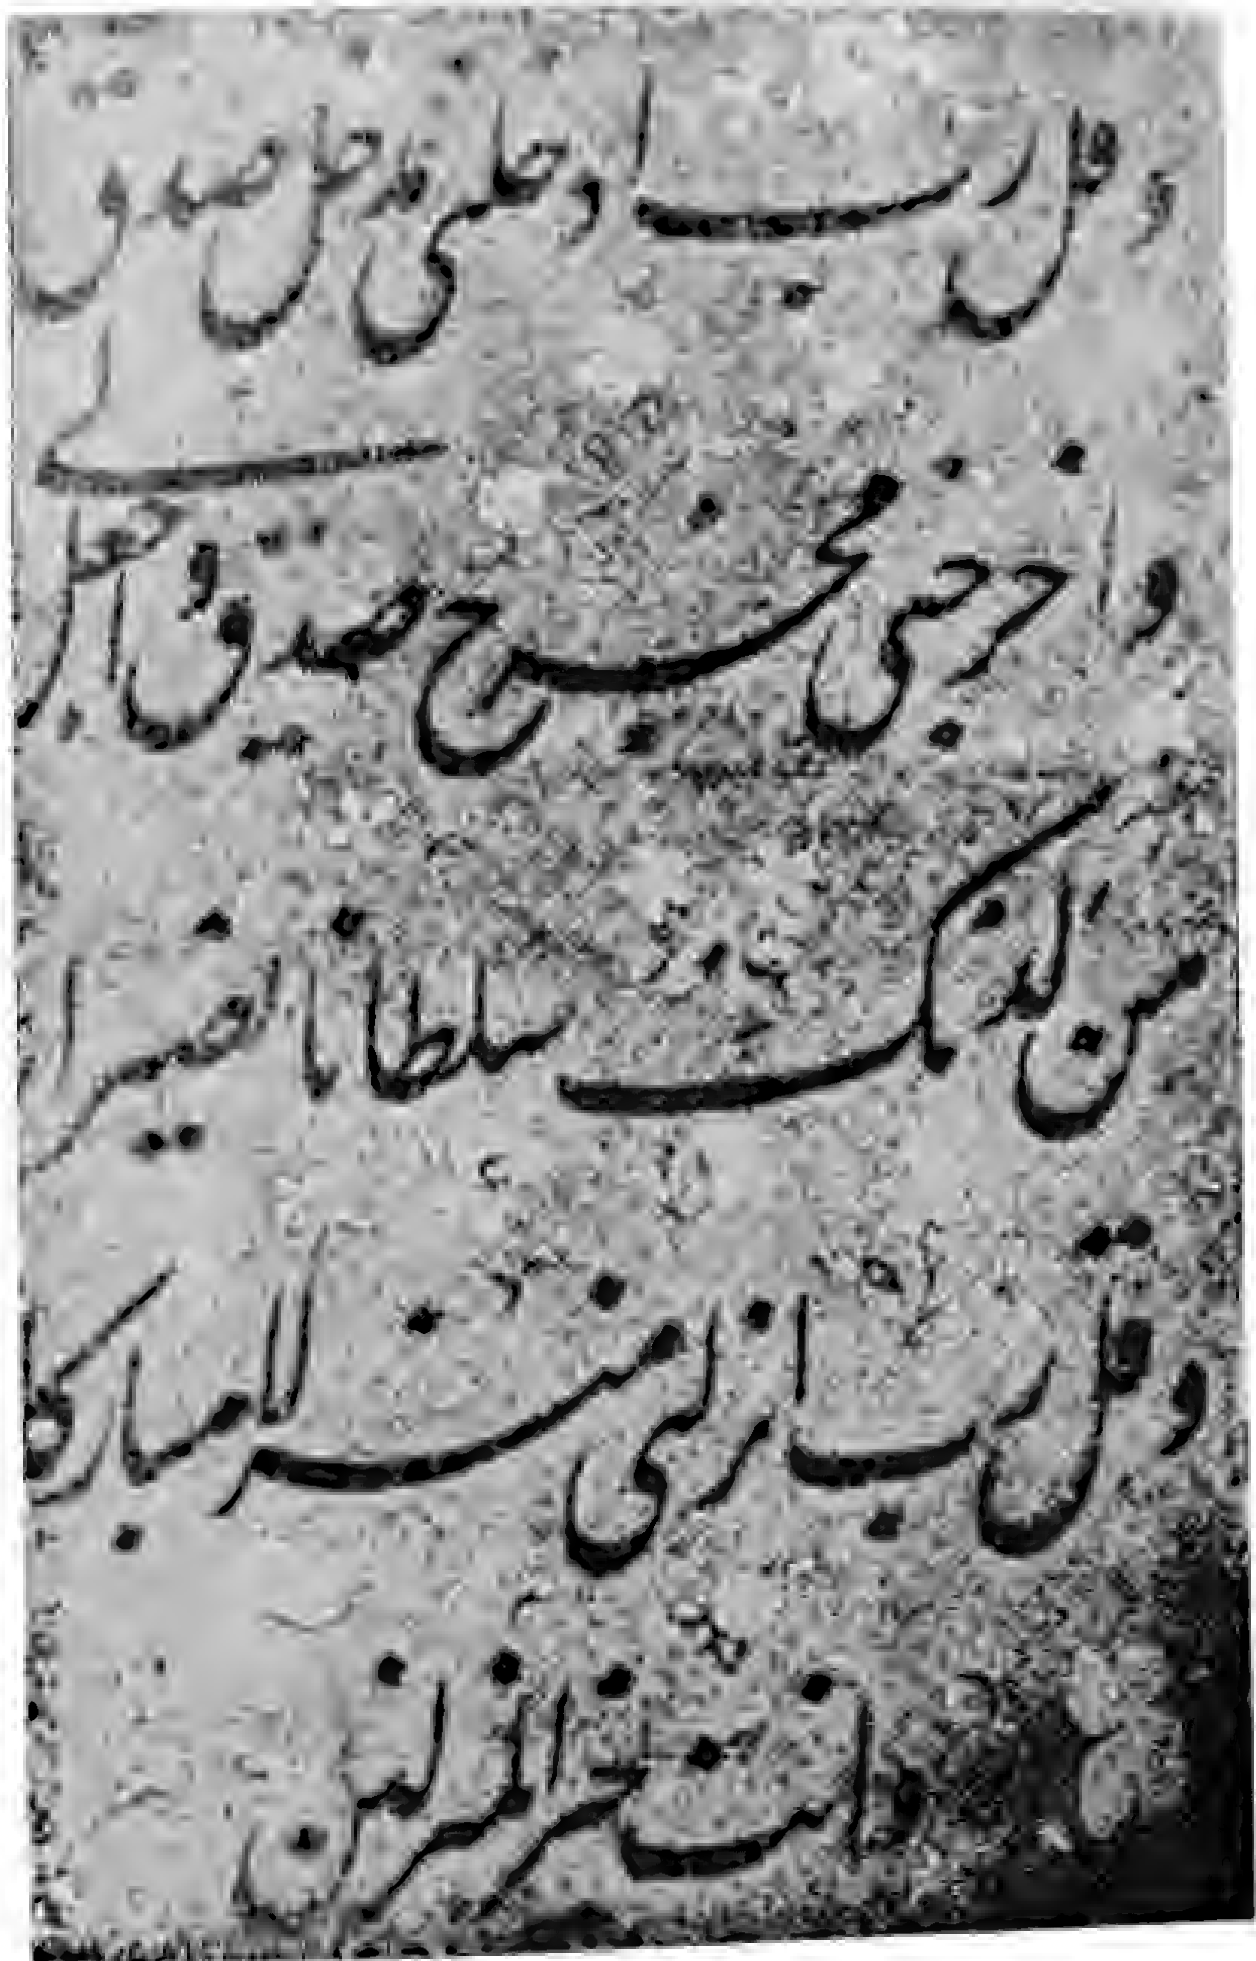 وقل رب ادخلنی مدخل صدق
واخرجنی مخرج صدق واجعل لی
من لدنک سلطانا نصیرا
وقل رب انزلنی منزلا مبارکا
وانت خیر المنزلین